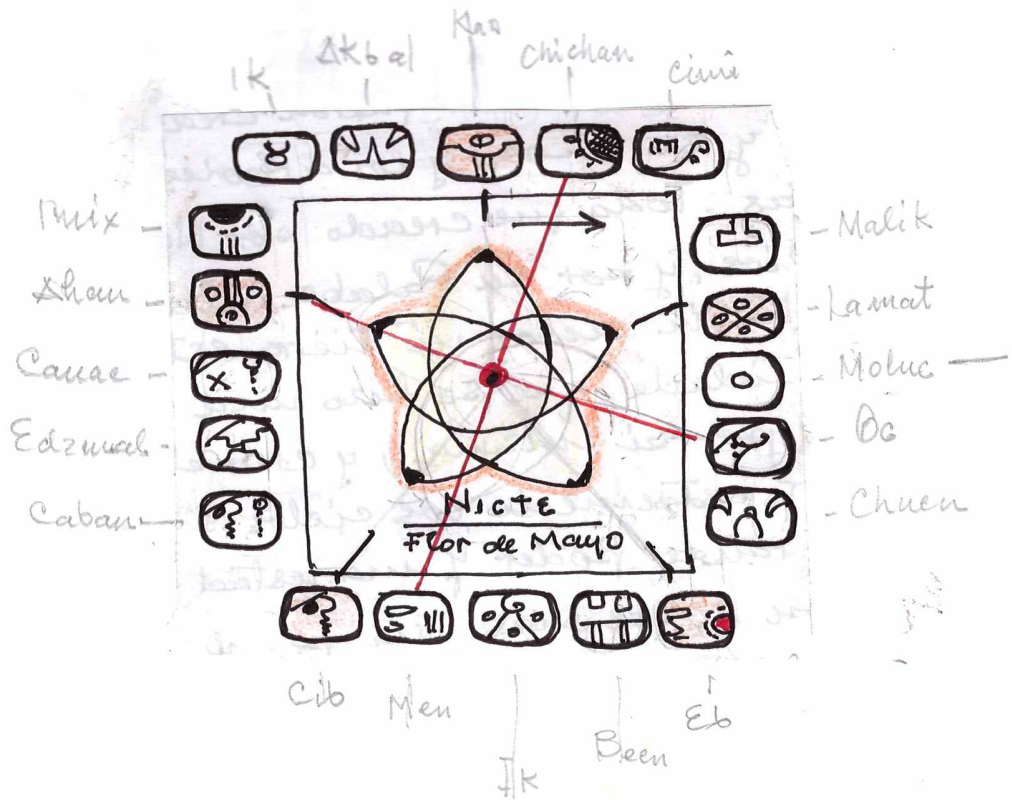 IK
AKbal
Chichan
cimi
Ahau
Cauac
Caban
Malik
Lamat
Moluc
Oc
Chuen
NICTE
Flor de Mayo
Cib
Men
IK
Been
Eb